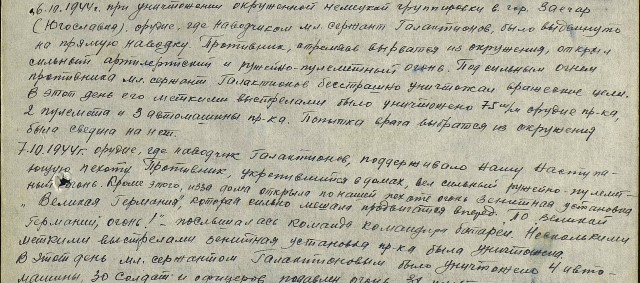 6.10.1944г. при уничтожении окруженной немецкой группировки в гор. Заечар
(Югославия), орудие, где наводчиком мл. сержант Галактионов, было выдвинуто
на прямую наводку. Противник, стремясь вырватся из окружения, открыл
сильный артилерийский и ружейно-пулеметный огонь. Под сильным огнем
противника мл. сержант Галактионов бесстрашно уничтожал вражеские цели.
В этот день его меткими выстрелами было уничтожено 75 м/м орудие пр-ка,
2 пулемета и 3 автомашины пр-ка. Попытка врага выбратся из окружения
была сведена на нет.
7.10.1944г. орудие, где наводчик Галактионов, поддерживало нашу наступа-
ющую пехоту. Противник, укрепившится в домах, вел сильный ружейно-пулемет-
ный огонь. Кроме этого, из-за дома открыла по нашей пехоте огонь зенитная установка
„Великая Германия", которая сильно мешала продвигатся вперед. „По Великой
Германии, огонь!" – послышалась команда командира батареи. Несколькими
меткими выстрелами зенитная установка пр-ка была уничтожена.
В этот день мл. сержантом Галактионовым было уничтожено 4 авто-
машины, 30 солдат и офицеров, подавлен огонь